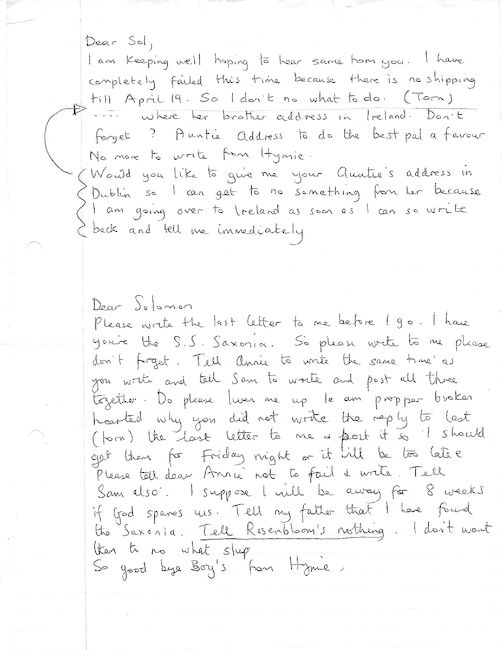 Dear Sol,
I am keeping well hoping to hear same from you. I have
completely failed this time because there is no shipping
till April 19. So I don't no what to do. (Torn)
.... where her brother address in Ireland. Don't
forget ? Auntie Address to do the best pal a favour
No more to write from Hymie.
Would you like to give me your Auntie's address in
Dublin so I can get to no something from her because
I am going over to Ireland as soon as I can so write
back and tell me immediately
Dear Solomon
Please write the last letter to me before I go. I have
you're the S.S. Saxonia. So please write to me please
don't forget. Tell Annie to write the same time as
you write and tell Sam to write and post all three
together. Do please liven me up Ie am propper broken
hearted why you did not write the reply to last
(torn) the last letter to me & post it so I should
get them for Friday night or it will be too late
Please tell dear Annie not to fail & write. Tell
Sam also. I suppose I will be away for 8 weeks
if God spares us. Tell my father that I have found
the Saxonia. Tell Rosenbloom's nothing. I don't want
them to no what ship
So good bye Boy's from Hymie.